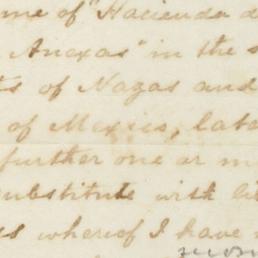 me of "Hacienda d
Anexas" in the s
ts of Nazas and
of Mexico, late
further one or m
substitute with li
ss whereof I have